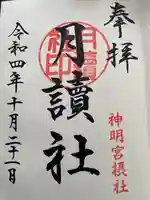 奉拝
神明宮摂社
月讀社
令和四年十月二十一日